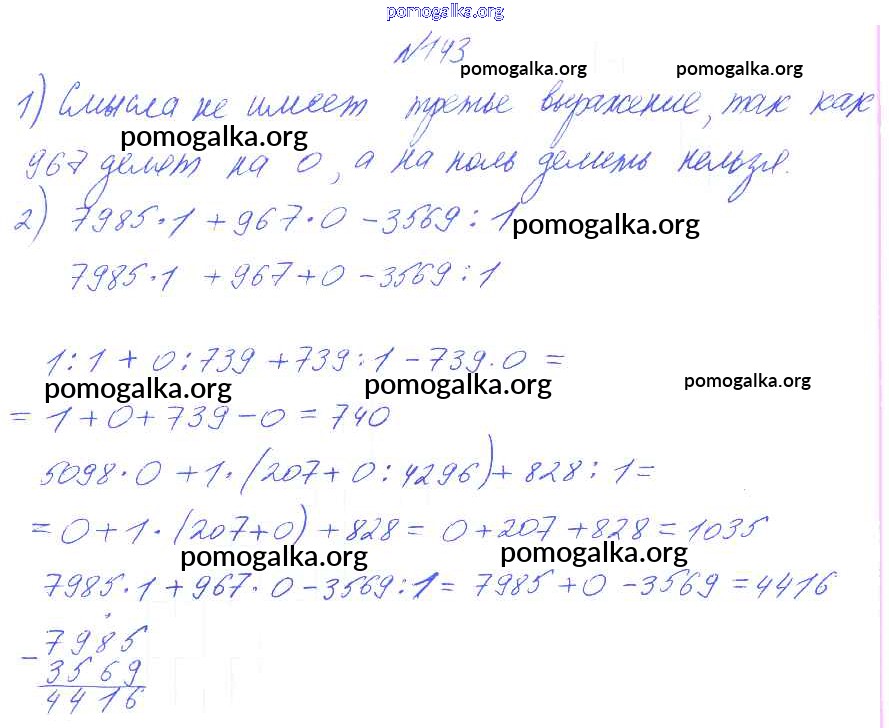 pomogalka.org
№143
pomogalka.org pomogalka.org
1) Смысла не имеет третье выражение, так как
pomogalka.org
967 делят на 0, а на ноль делить нельзя.
2) 7985·1 + 967·0 - 3569 : 1
pomogalka.org
7985·1 + 967 + 0 - 3569 : 1
1 : 1 + 0 : 739 + 739 : 1 - 739·0 =
pomogalka.org pomogalka.org pomogalka.org
= 1 + 0 + 739 - 0 = 740
5098·0 + 1·(207 + 0 : 4296) + 828 : 1 =
= 0 + 1·(207 + 0) + 828 = 0 + 207 + 828 = 1035
pomogalka.org pomogalka.org
7985·1 + 967·0 - 3569 : 1 = 7985 + 0 - 3569 = 4416
- 7985
3569
4416